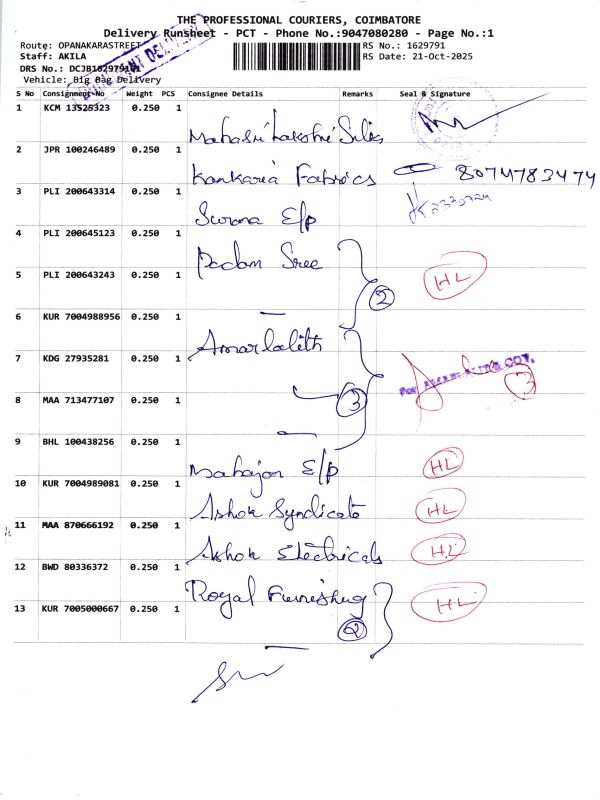 THE PROFESSIONAL COURIERS, COIMBATORE
Delivery Runsheet - PCT - Phone No.:9047080280 - Page No.:1
Route: OPANAKARASTREET RS No.: 1629791
Staff: AKILA RS Date: 21-Oct-2025
DRS No.:
Vehicle: Big Bag Delivery
S No Consignment No Weight PCS Consignee Details Remarks Seal & Signature
1 KCM 13525323 0.250 1
Mahasri Lakshmi Silks
2 JPR 100246489 0.250 1
Kankaria Fabrics 8074783474
3 PLI 200643314 0.250 1
Surana E/p
4 PLI 200645123 0.250 1
Padam Sree
5 PLI 200643243 0.250 1 HL
2
6 KUR 7004988956 0.250 1
Amarlalith
7 KDG 27935281 0.250 1
For
3
8 MAA 713477107 0.250 1 3
9 BHL 100438256 0.250 1
Mahajan E/p HL
10 KUR 7004989081 0.250 1
Ashok Syndicate HL
11 MAA 870666192 0.250 1
Ashok Electricals HL
12 BWD 80336372 0.250 1
Royal Furnishing HL
13 KUR 7005000667 0.250 1
2